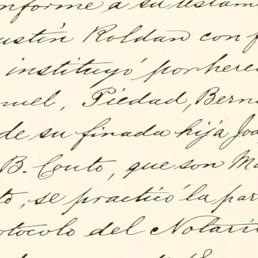 nforme a su testam
ustín Roldan con f
instituyó por here
nuel, Piedad, Bern
de su finada hija Joa
B. Couto, que son Ma
to, se practicó la par
otocolo del Notari